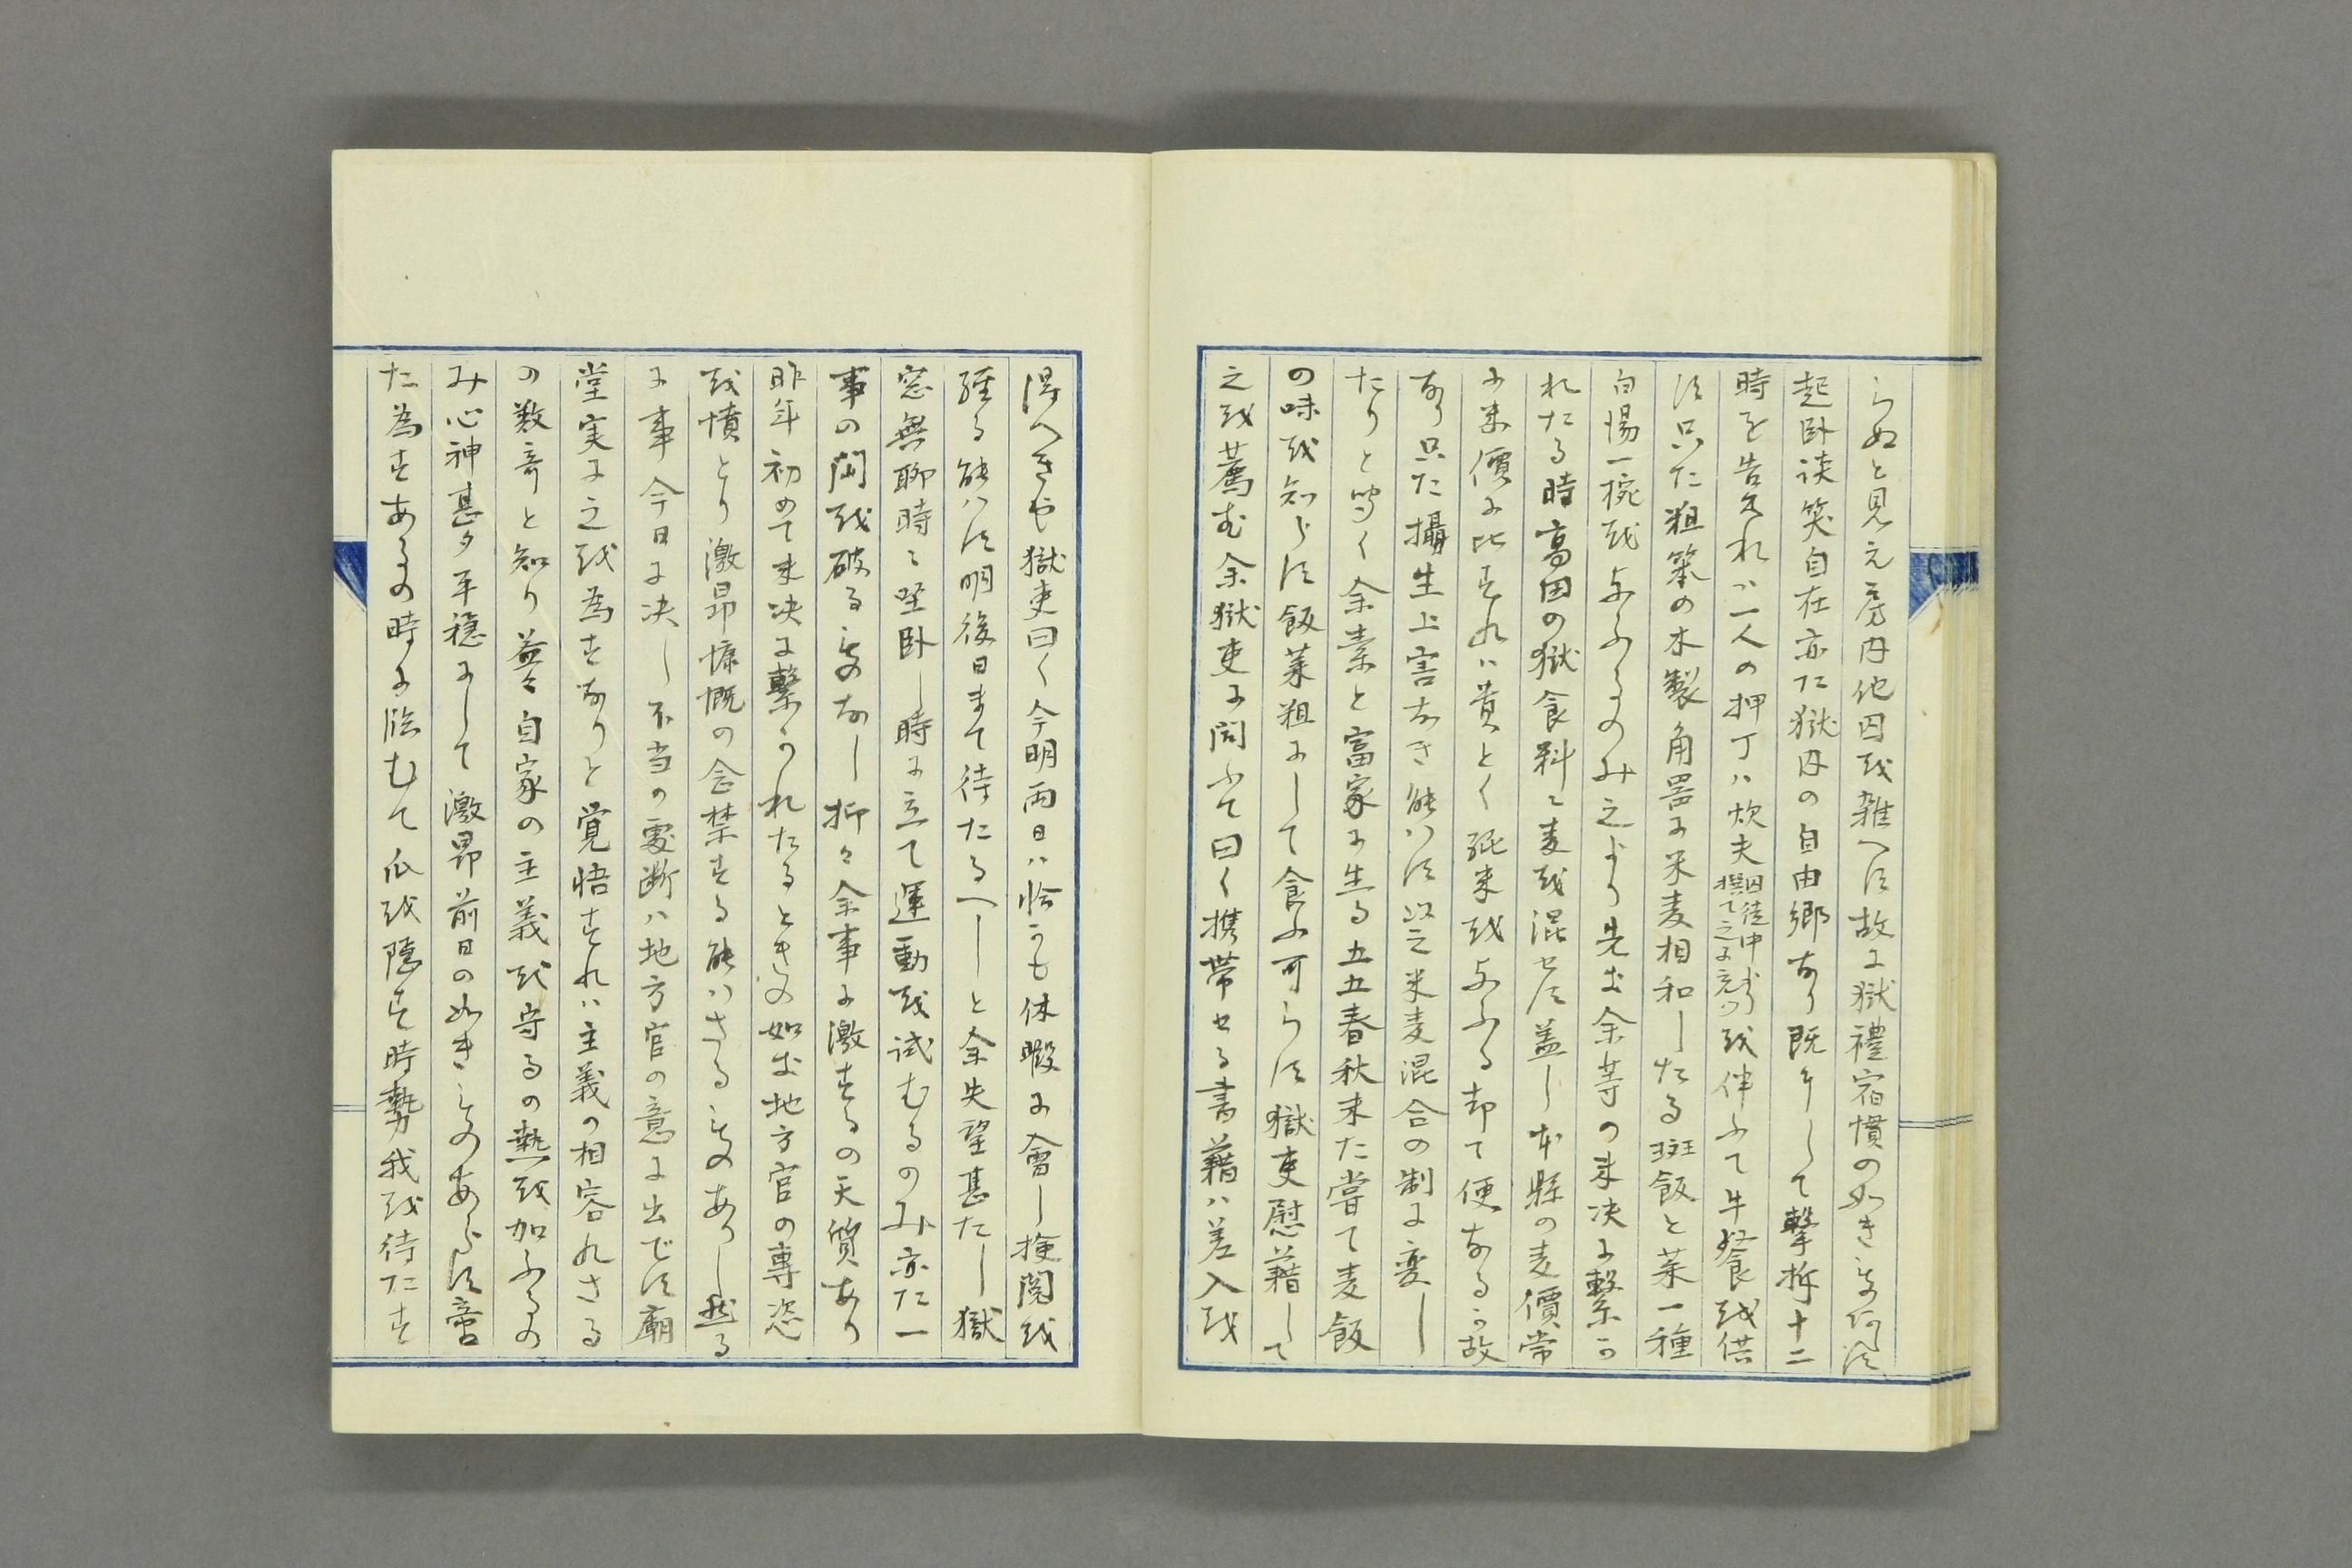 らぬと見え房内他囚を雑へす故に獄禮宿慣の如きものあらす
起臥談笑自在亦た獄内の自由郷なり既にして撃柝十二
時を告くれハ一人の押丁ハ炊夫囚徒中より撰て之に充つを伴ふて午餐を供
す只た粗笨の木製角器に米麦相和したる斑飯と菜一種
白湯一椀を与ふるのみ之より先き余等の未决に繋か
れたる時高田の獄食料ニ麦を混せす蓋し本縣の麦價常
に米價に比すれハ貴とく純米を与ふる却て便なるか故
なり只た攝生上害なき能ハす以之米麦混合の制に変し
たりと聞く余素と富家に生る五五春秋未た嘗て麦飯
の味を知らす飯菜粗にして食ふ可らす獄吏慰藉して
之を薦む余獄吏に問ふて曰く携帯せる書藉ハ差入を
得へきや獄吏曰く今明両日ハ恰かも休暇に會し撿閲を
經る能ハす明後日まて待たるへしと余失望甚たし獄
窓無聊時ニ坐臥し時に立て運動を試むるのみ亦た一
事の関を破るものなし抑々余事に激するの天質あり
昨年初めて未决に繋かれたるときの如き地方官の專恣
を憤とり激昻慷慨の念禁する能ハさるものありし然る
に事今日に决し不当の處断ハ地方官の意に出です廟
堂実に之を為すなりと覚悟すれハ主義の相容れさる
の数奇と知り益々自家の主義を守るの熱を加ふるの
み心神甚タ平穏にして激昻前日の如きものあらす啻
た為すあるの時に臨むて爪を隠す時勢我を待たす